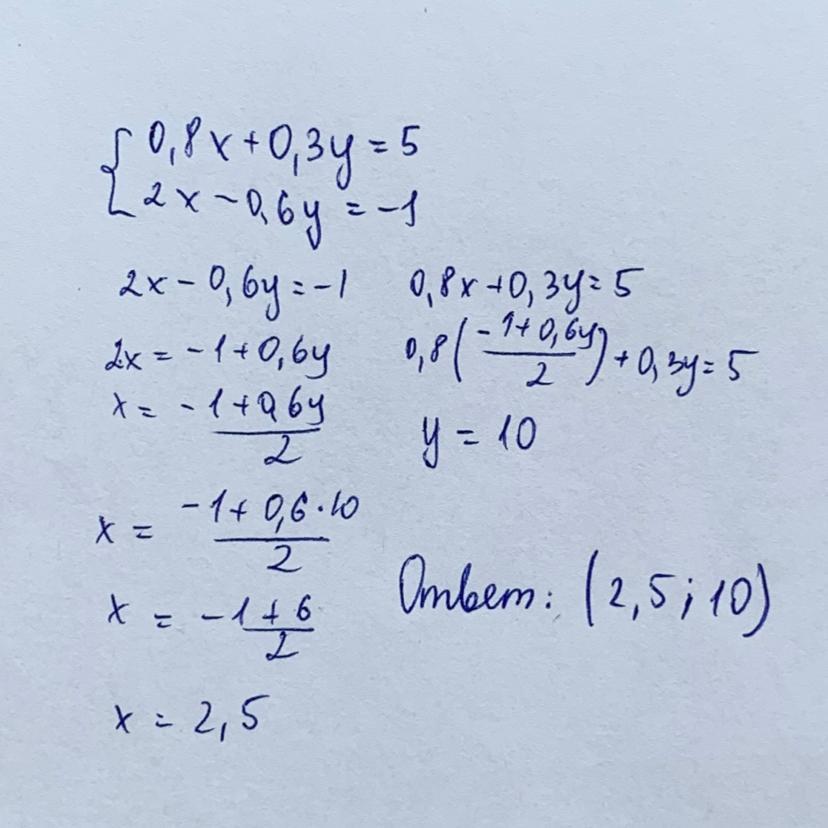 0,8x+0,3y=5
2x-0,6y=-1
2x-0,6y=-1 0,8x+0,3y=5
2x=-1+0,6y 0,8(\frac{-1+0,6y}{2})+0,3y=5
x=\frac{-1+0,6y}{2} y=10
x=\frac{-1+0,6·10}{2}
x=\frac{-1+6}{2} Ответ: (2,5;10)
x=2,5